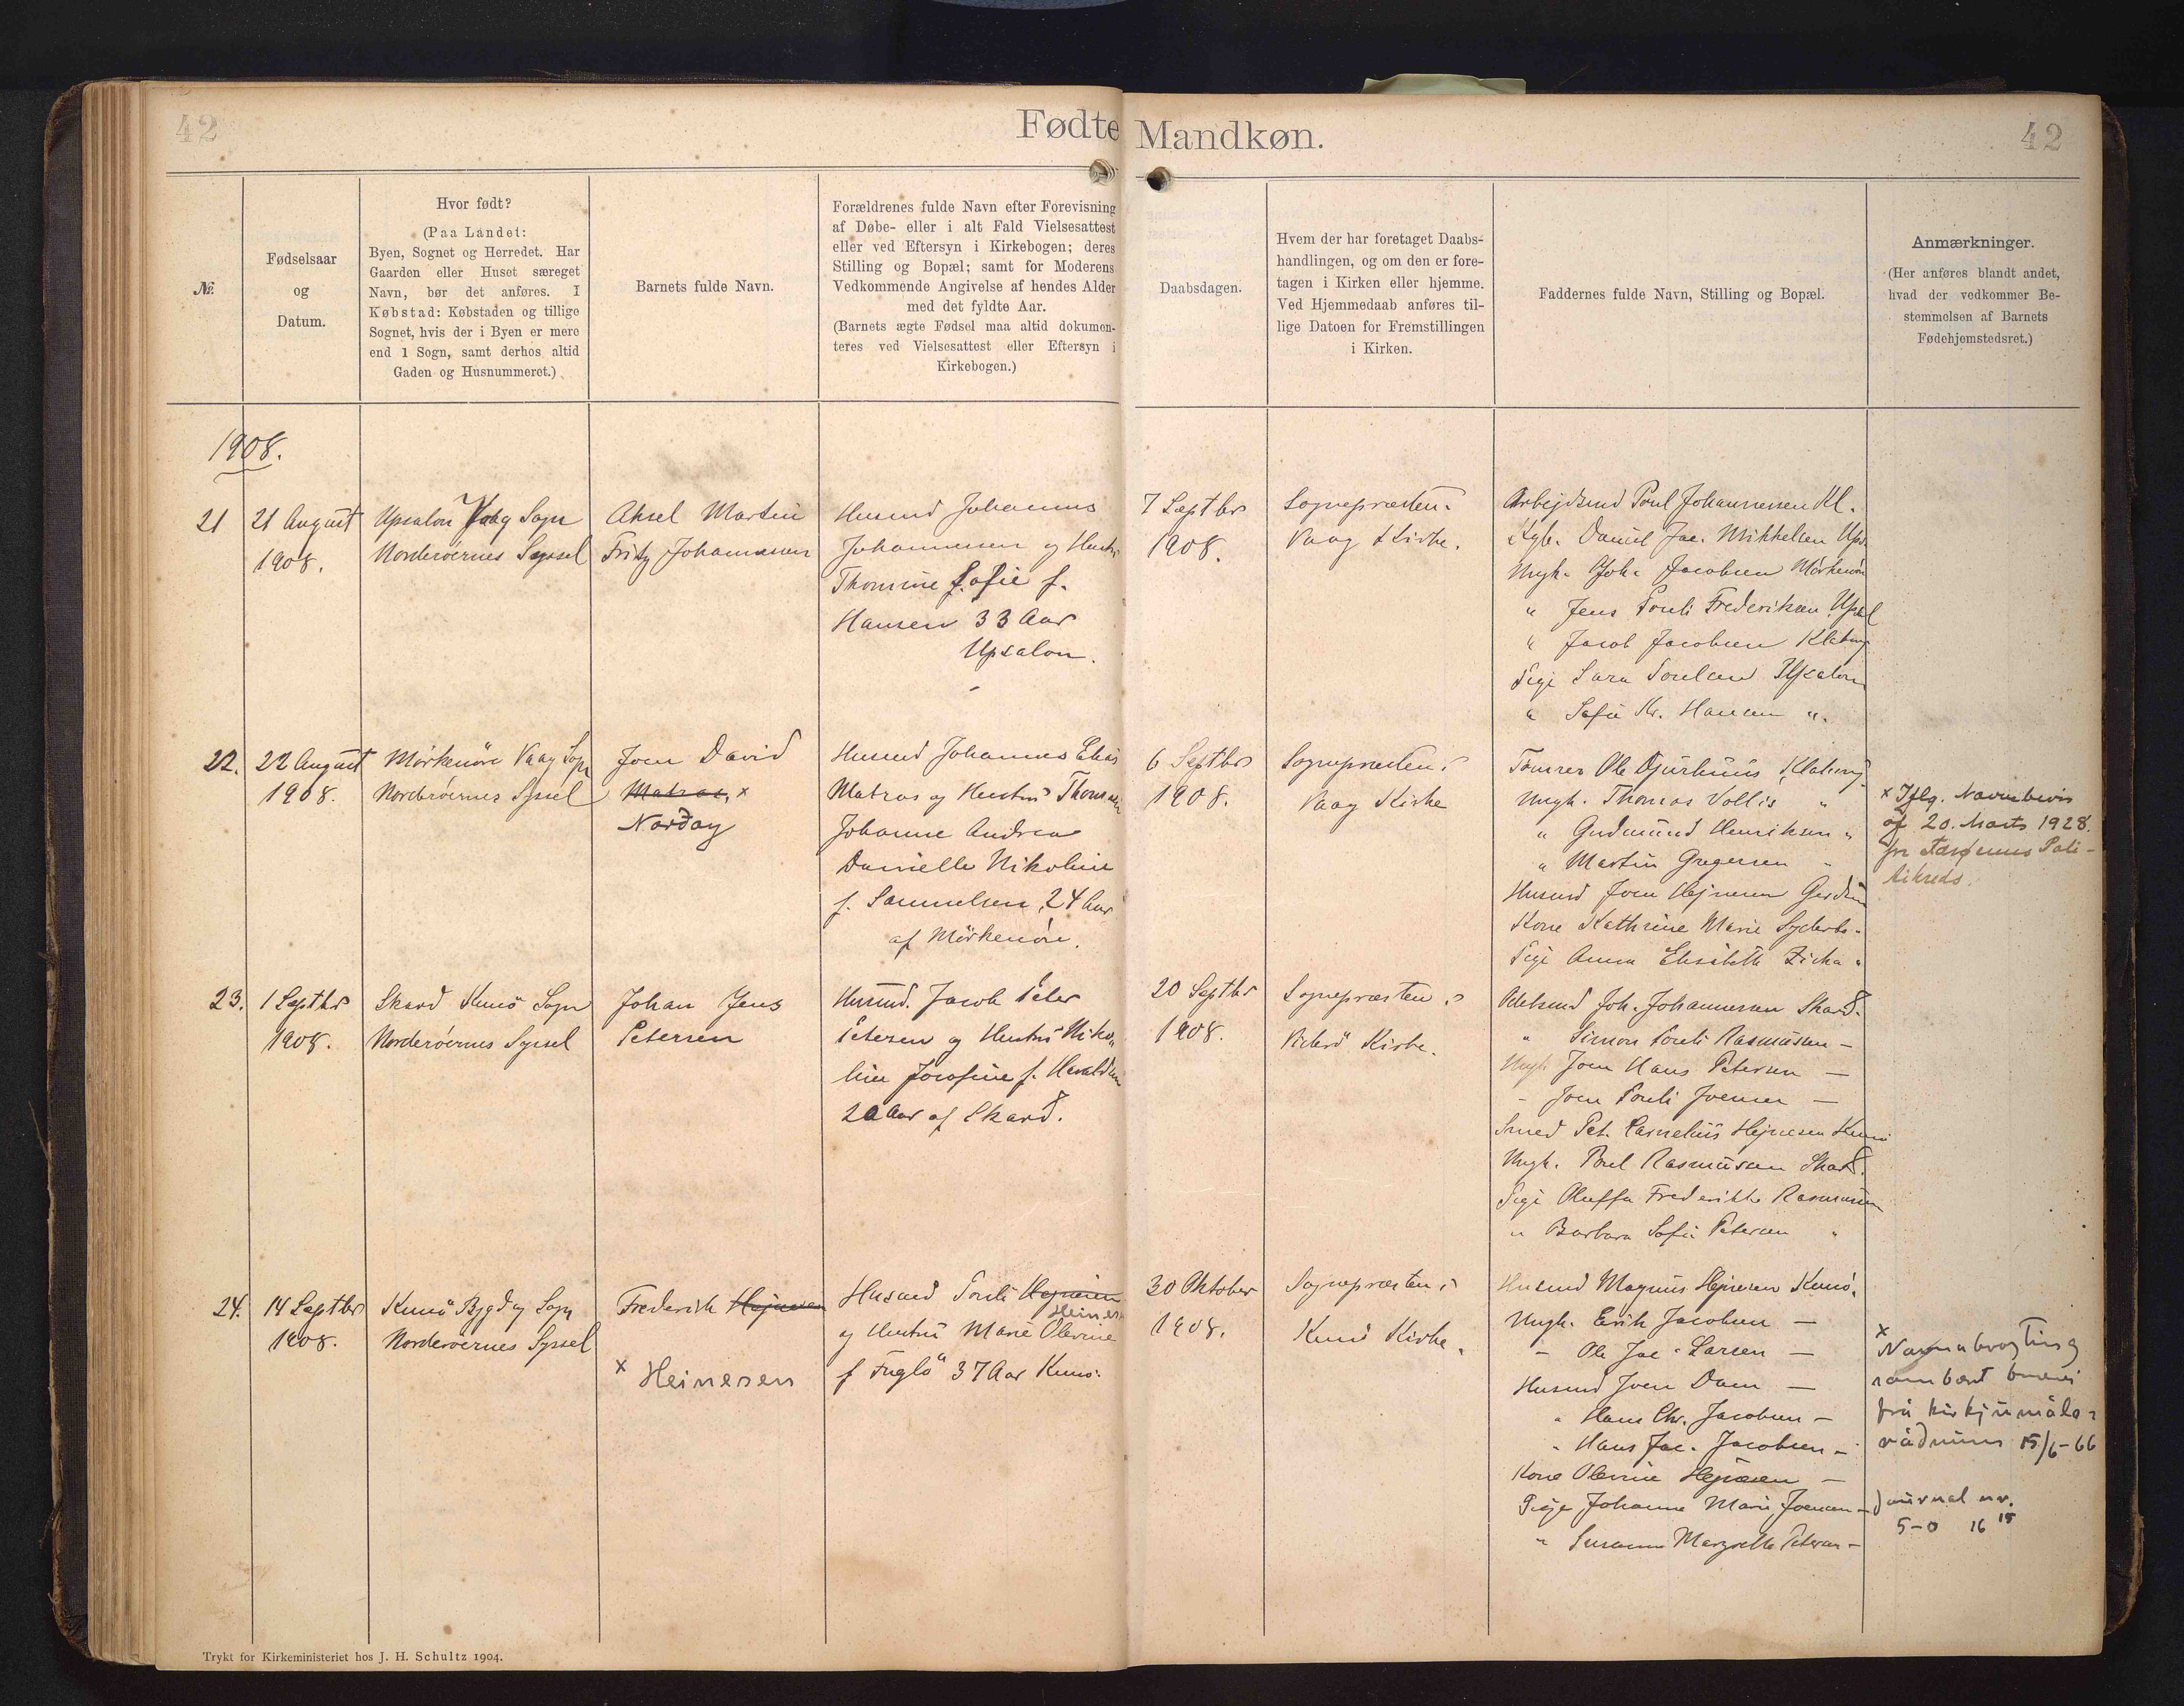 42
Fødte Mandkøn.
42
№.
Fødselsaar
og
Datum.
Hvor født?
(Paa Landet:
Byen, Sognet og Herredet. Har
Gaarden eller Huset særeget
Navn, bør det anføres. I
Købstad: Købstaden og tillige
Sognet, hvis der i Byen er mere
end 1 Sogn, samt derhos altid
Gaden og Husnummeret.)
Barnets fulde Navn.
Forældrenes fulde Navn efter Forevisning
af Døbe- eller i alt Fald Vielsesattest
eller ved Eftersyn i Kirkebogen; deres
Stilling og Bopæl; samt for Moderens
Vedkommende Angivelse af hendes Alder
med det fyldte Aar.
(Barnets ægte Fødsel maa altid dokumen-
teres ved Vielsesattest eller Eftersyn i
Kirkebogen.)
Daabsdagen.
Hvem der har foretaget Daabs-
handlingen, og om den er fore-
tagen i Kirken eller hjemme.
Ved Hjemmedaab anføres til-
lige Datoen for Fremstillingen
i Kirken.
Faddernes fulde Navn, Stilling og Bopæl.
Anmærkninger.
(Her anføres blandt andet,
hvad der vedkommer Be-
stemmelsen af Barnets
Fødehjemstedsret.)
1908.
21
21 August
1908.
Upsalon Vaag Sogn
Norderøernes Syssel
Aksel Martin
Fritz Johannesen
Husmd Johannes
Johannesen og Hustru
Thomine Sofie f.
Hansen 33 Aar
Upsalon.
7 Septbr
1908.
Sognepræsten i
Vaag Kirke.
Arbejdsmd Poul Johannesen Kl.
Daniel Jac. Mikkelsen Ups.
Ungk. Joh. Jacobsen Mørkenøre
" Jens Pouli Frederiksen Upsal
" Jacob Jacobsen Klaksvig
Pige Sara Poulsen Upsalon
" Sofie Kr. Hansen ".
22.
22 August
1908.
Mørkenøre Vaag Sogn
Norderøernes Syssel
Joen David
Matras, x
Norðoy
Husmd Johannes Elias
Matras og Hustru
Johanne Andrea
Danielle Nikoline
f. Samuelsen, 24 Aar
af Mørkenøre.
6 Septbr
1908.
Sognepræsten i
Vaag Kirke
Tømrer Ole Djurhuus Klaksvig
Ungk. Thomas Vollis "
" Gudmund Henriksen "
" Martin Gregersen "
Husmd Joen Hejnesen
Kone Kathrine Marie
Pige Anna Elisabeth Ziska "
x Iflg. Navnebevis
af 20. Marts 1928.
fra Færøernes Poli-
tikreds.
23.
1 Septbr
1908.
Skard Kunø Sogn
Norderøernes Syssel
Johan Jens
Petersen
Husmd. Jacob Peter
Petersen og Hustru Niko-
line Josefine f. Haraldsen
20 Aar af Skard.
20 Septbr
1908.
Sognepræsten i
Viderø Kirke.
Odelsmd Joh. Johannesen Skard.
" Simon Pouli Rasmussen —
Ungk. Joen Hans Petersen —
- Joen Pouli Joensen —
Smed Pet. Cornelius Hejnesen Kunø
Ungk. Poul Rasmussen Skard.
Pige Oluffa Frederikke Rasmussen
" Barbara Sofie Petersen "
24.
14 Septbr
1908.
Kunø Bygd og Sogn
Norderøernes Syssel
Frederik Hejnesen
x Heinesen
Husmd Pouli Hejnesen
Heinesen
og Hustru Marie Olevine
f Fuglø 37 Aar Kunø.
30 Oktober
1908.
Sognepræsten i
Kunø Kirke.
Husmd Magnus Hejnesen Kunø.
Ungk. Erik Jacobsen —
- Ole Jac. Larsen —
Husmd Joen Dam —
" Hans Chr. Jacobsen —
" Hans Jac. Jacobsen —
Kone Olevine Hejnesen —
Pige Johanne Marie Joensen —
" Susanne Margrethe Petersen —
x
Navnabroyting
samb&aelig;rt
frá kirkjumála-
ráðnum 15/6-66
Journal nr.
5-0 16 15
Trykt for Kirkeministeriet hos J. H. Schultz 1904.